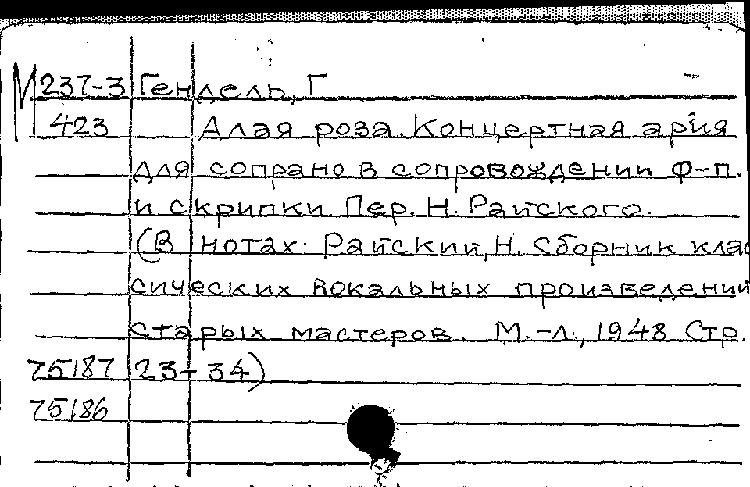 М 237-3 Гендель, Г
423 Алая роза. Концертная ария
для сопрано в сопровождении ф-п.
и скрипки. Пер. Н. Райского.
(В нотах: Райский, Н. Сборник клас
сических вокальных произведений
старых мастеров. М.-Л., 1948 Стр.
75187 23-34)
75186